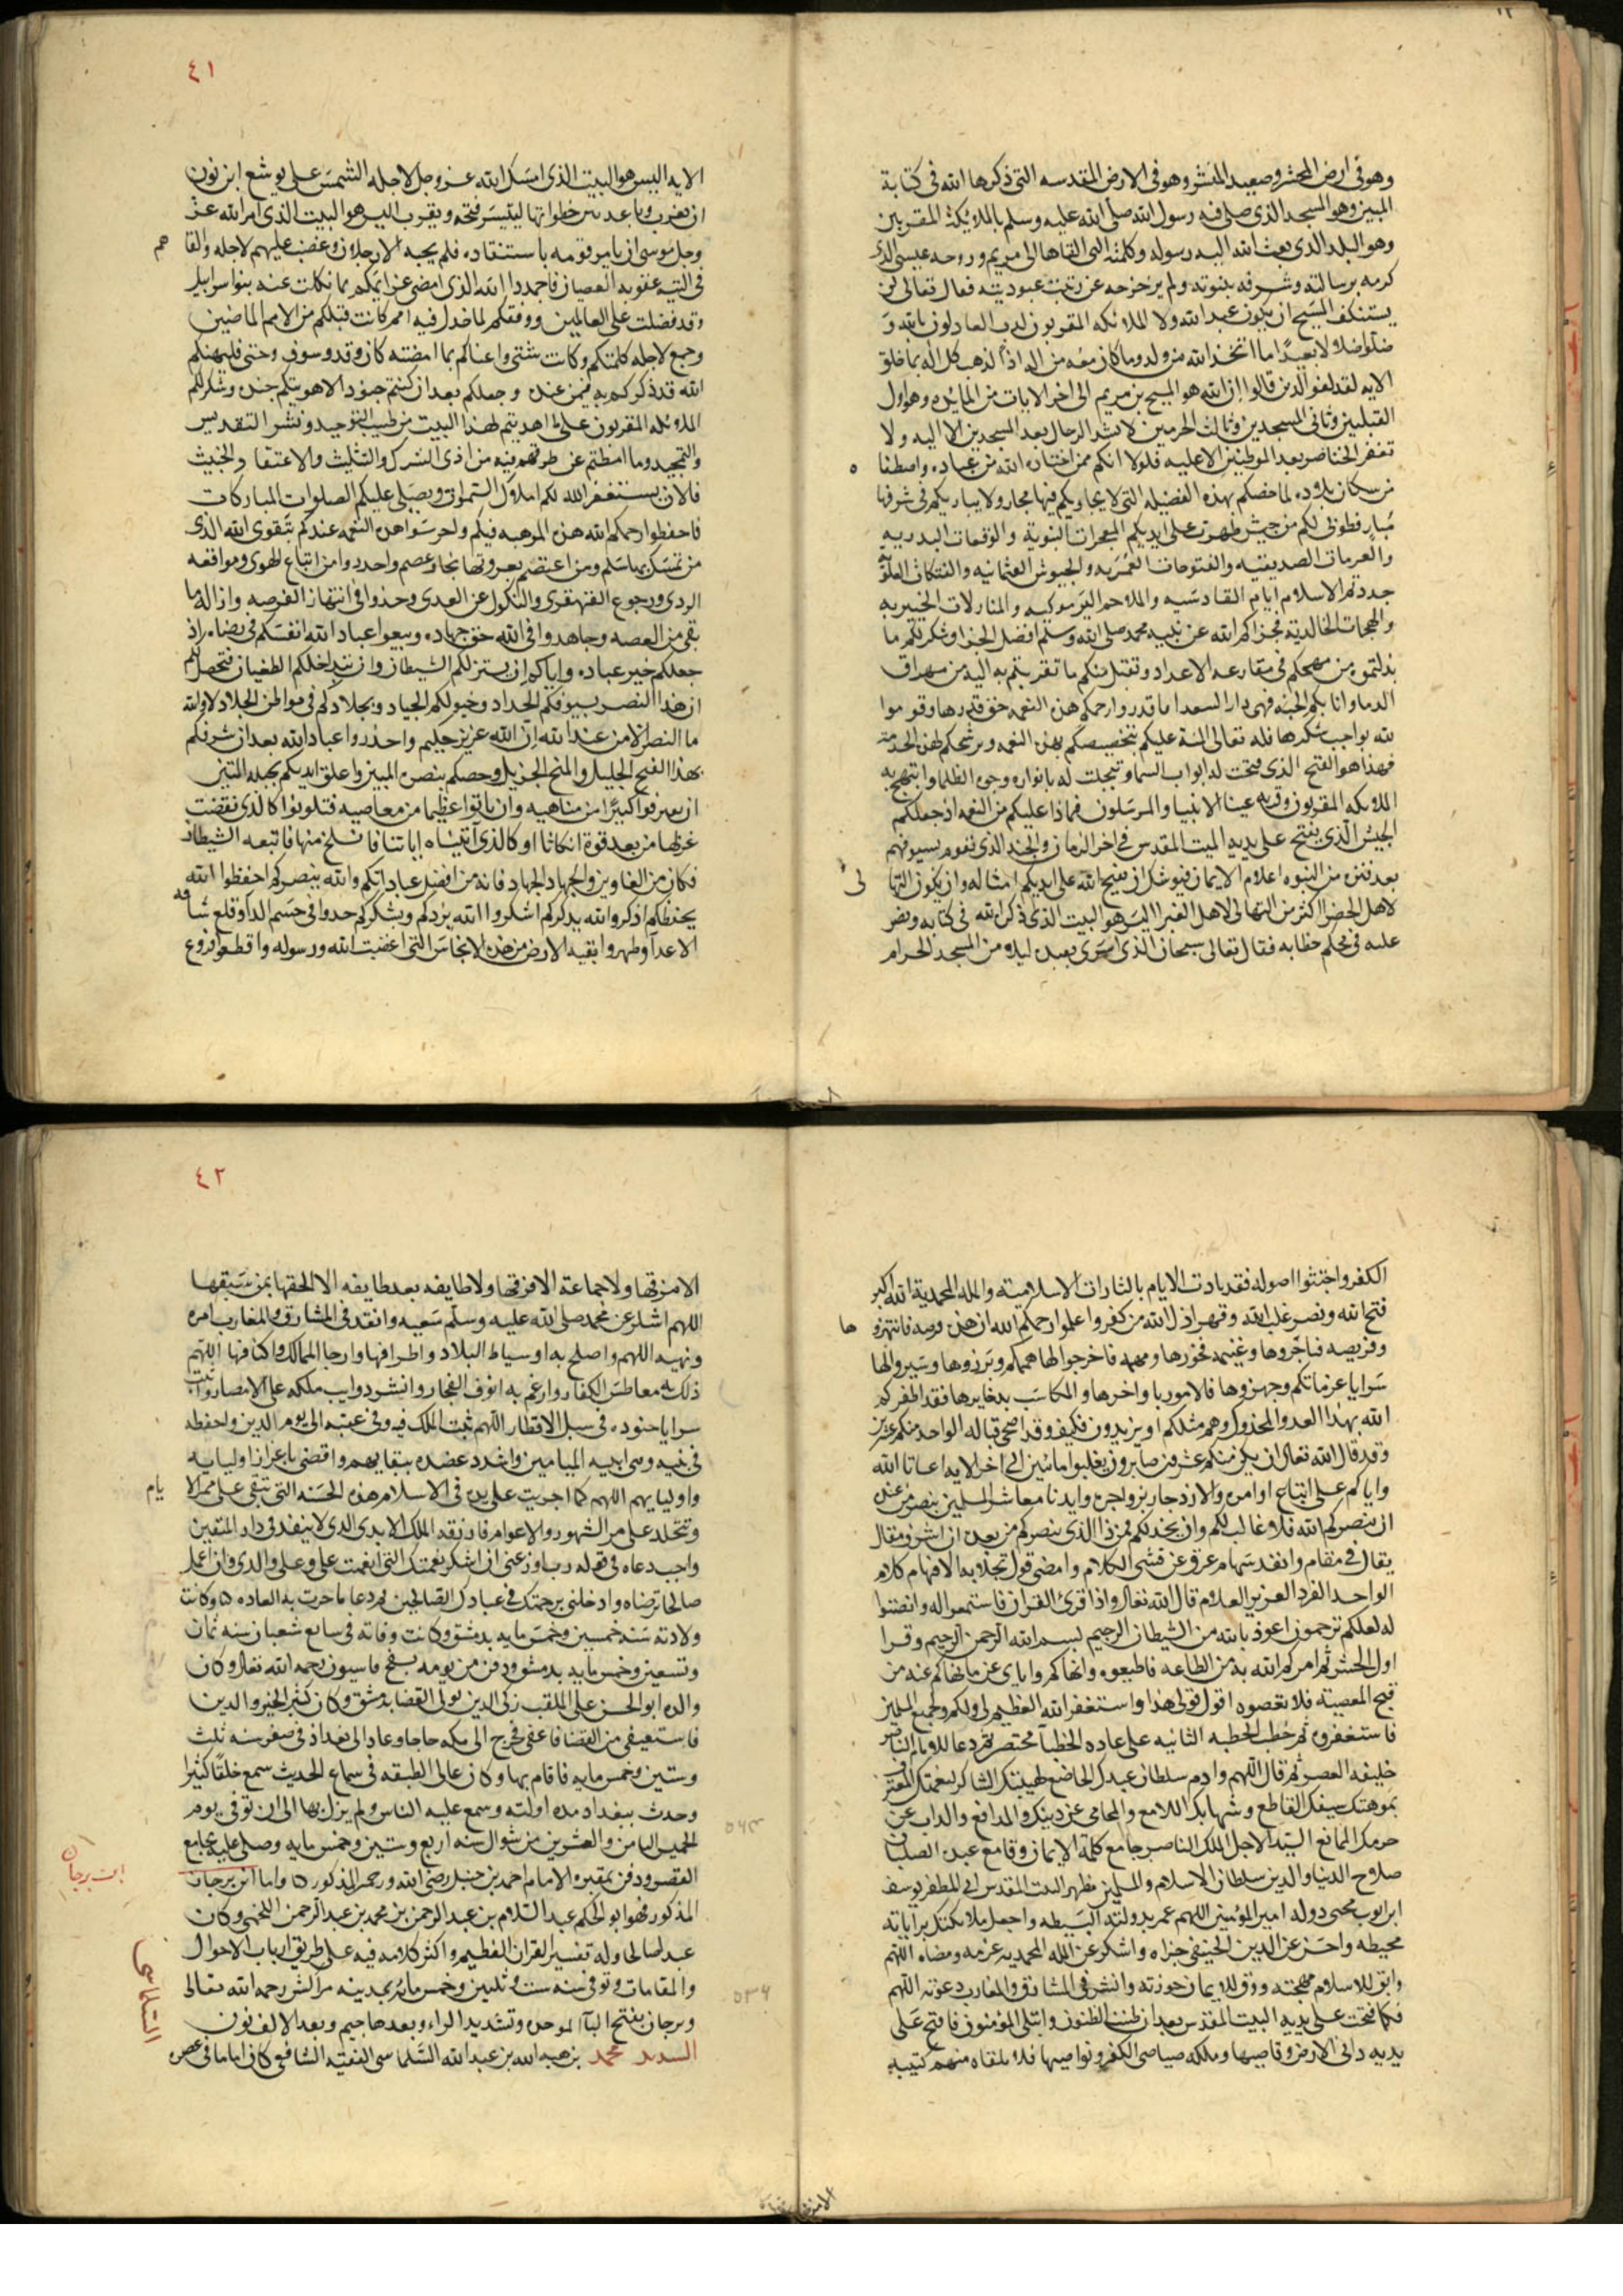 وهو في ارض المحشر وصعيد المنشر وهو في الارض المقدسه التي ذكرها الله في كتابة
المبين وهو المسجد الذي صلي فيه رسول الله صلى الله عليه وسلم بالملائكة المقربين
وهو البلد الذي بعث الله اليه رسوله وكلمته التي القاها الى مريم وروحه عيسى الذى
كرمه برسالته وشرفه بنبوته ولم يزحزحه عن رتبة عبوديته فقال تعالى لن
يستنكف المسيح ان يكون عبد الله ولا الملائكه المقربون كذب العادلون بالله و
ضلوا ضلالا بعيدًا ما اتخذ الله من ولد وما كان معه من اله اذًا لذهب كل اله بما خلق
الايه لقد كفر الذين قالوا ان الله هو المسيح بن مريم الى اخر الايات من المائده وهو اول
القبلتين وثاني المسجدين وثالث الحرمين لا تشد الرحال بعد المسجدين الا اليه ولا
تعقد الخناصر بعد الموطنين الا عليه فلولا انكم ممن اختاره الله من عباده واصطفا ه
من سكان بلاده لما خصكم بهذه الفضيله التي لا يجاريكم فيها مجار ولا يباريكم في شرفها
مبار فطوبى لكم من جيش ظهرت على ايديكم المعجرات النبوية والوقعات البدريه
والعزمات الصديقيه والفتوحات العمريه والجيوش العثمانيه والفتكات العلوية
جددتم للاسلام ايام القادسيه والملاحم اليرموكيه والمنازلات الخيبريه
والهجمات الخالدية فجزاكم الله عن نبيه محمد صلى الله وسلم افضل الجزا وشكر لكم ما
بذلتموه من مهجكم في مقارعه الاعداد وتقبل منكم ما تقربتم به اليه من مهراق
الدما واثابكم الجنه فهي دار السعدا فاقدروا رحمكم هذه النعمه حق قدرها وقوموا
لله بواجب شكرها فله تعالى المنة عليكم بتخصيصكم بهذه النعمه وترشيحكم لهذه الخدمة
فهذا هو الفتح الذي فتحت له ابواب السما وتبجلت له بانواره وجوه الظلما وابتهج به
الملائكه المقربون وقر به عينا الانبيا والمرسلون فماذا عليكم من النعمه اذ جعلكم
الجيش الذي يفتح على يديه البيت المقدس في اخر الزمان والجند الذى تقوم بسيوفهم
بعد فترة من النبوه اعلام الايمان فيوشك ان يفتح الله على ايديكم امثاله وان يكون التها نى
لاهل الخضرا اكثر من التهانى لاهل الغبرا اليس هو البيت الذى ذكره الله في كتابه ونص
عليه في محكم خطابه فقال تعالى سبحان الذى اسرى بعبده ليلا من المسجد الحرام
٤١
الايه اليس هو البيت الذى امسك الله عز وجل لاجله الشمس على يوشع ابن نون
ان تغرب وباعد بين خطواتها ليتيسر فتحه ويقرب اليس هو البيت الذى امر الله عز
وجل موسى ان يامر قومه باستنقاده فلم يجبه الا رجلان وغضب عليهم لاجله والقا هم
في التيه عقوبه العصيان فاحمدوا الله الذى امضى عزايمكم بما نكلت عنه بنوا سرايل
وقد فضلت على العالمين ووفقكم لما خذل فيه امم كانت قبلكم من الامم الماضين
وجمع لاجله كلمتكم وكانت شتى واغناكم بما امضته كان وقد وسوف وحتى فليهنكم
الله قد ذكركم به فيمن عنده وجعلكم بعد ان كنتم جنودا لاهويتكم جنده وشكر لكم
الملائكه المقربون على ما اهديتم لهذا البيت من طيب التوحيد ونشر التقديس
والتمجيد وما امطتم عن طرقهم فيه من اذى الشرك والتثليث والاعتقا والخبيث
فالان يستغفر الله لكم املاك السموات ويصلى عليكم الصلوات المباركات
فاحفظوا رحمكم الله هذه الموهبه فيكم واحرسوا هذه النعمه عندكم بتقوى الله الذى
من تمسك بها سلم ومن اعتصم بعروتها نجا وعصم واحدروا من اتباع الهوى وموافقه
الردى ورجوع القهقرى والنكول عن العدى وخذوا في انتهاز الفرصه وازالة ما
بقى من الغصه وجاهدوا في الله حق جهاده وبيعوا عباد الله انفسكم في رضاه اذ
جعلكم خير عباده واياكم ان يستزلكم الشيطان وان يتداخلكم الطغيان فتخيل لكم
ان هذا النصر بسيوفكم الحداد وخيولكم الجياد وبجلادكم في مواطن الجلاد لا والله
ما النصر الا من عند الله ان الله عزيز حكيم واحذروا عباد الله بعد ان شرفكم
بهذا الفتح الجليل والمنح الجزيل وخصكم بنصره المبين واعلق ايديكم بحبله المتين
ان تقترفوا كبيرًا من مناهيه وان تاتوا عظيما من معاصيه فتلونوا كالذى نقضت
غزلها من بعد قوة انكاثا او كالذى اتيناه اياتنا فانسلخ منها فاتبعه الشيطان
فكان من الغاوين والجهاد الجهاد فانه من افضل عباداتكم والله ينصركم احفظوا الله
يحفظكم اذكروا الله يذكركم اشكروا الله يزدكم ويشكركم خدوا في حسم الدآ وقلع شافه
الاعدآ وطهروا بقيه الارض من هذه الانجاس التي اغضبت الله ورسوله واقطعوا فروع
الكفر واجتثوا اصوله فقد نادت الايام بالثارات الاسلامية والملة المحمدية الله اكبر
فتح الله ونصر غلب الله وقهر اذل الله من كفر واعلموا رحمكم الله ان هذه فرصه فانتهزو ها
وفريصه فناجزوها وغنيمه فحوزها ومهمه فاخرجوا لها هممكم وبرزوها وسيروا لها
سرايا عزماتكم وجهزوها فالامور باواخرها والمكاسب بدخايرها فقد اظفركم
الله بهذا العدو المخذول وهم مثلكم او يزيدون فكيف وقد اضحى قباله الواحد منكم عشرين
وقد قال الله تعالى ان يكن منكم عشرون صابرون يغلبوا مائتين الى اخر الايه اعاننا الله
واياكم على اتباع اوامره والازدجار بزواجره وايدنا معاشر المسلمين بنصر من عنده
ان ينصركم الله فلا غالب لكم وان يخذلكم فمن ذا الذى ينصركم من بعده ان اشرف مقال
يقال في مقام وانفد سهام عرق عن قسى الكلام وامضى قول تجلا به الافهام كلام
الواحد الفرد العزيز العلام قال الله تعالى واذا قرئ القران فاستمعوا له وانصتوا
له لعلكم ترحمون اعوذ بالله من الشيطان الرجيم بسم الله الرحمن الرحيم وقرا
اول الحشر ثم امركم الله به من الطاعه فاطيعوه وانهاكم واياى عن ما نهاكم عنه من
قبح المعصيه فلا تعصوه اقول قولى هذا واستغفر الله العظيم لي ولكم ولجميع المسلمين
فاستغفروه ثم خطب الخطبه الثانيه على عاده الخطبآ مختصر ثم دعا للامام الناصر
خليفه العصر ثم قال اللهم وادم سلطان عبدك الخاضع لهيبتك الشاكر لنعمتك المعترف
بموهبتك سيفك القاطع وشهابك اللامع والمحامي عن دينك والمدافع والداب عن
حرمك الممانع السيد الاجل الملك الناصر جامع كلمة الايمان وقامع عبده الصلبان
صلاح الدنيا والدين سلطان الاسلام والمسلمين مطهر البيت المقدس ابي المظفر يوسف
ابن ايوب محيى دوله امير المؤمنين اللهم عمر بدولته البسيطه واجعل ملائكتك براياته
محيطه واحسن عن الدين الحنيفي جزاه واشكر عن الملة المحمديه عزمه ومضاه اللهم
وابق للاسلام مهجته ووق للايمان حوزته وانشر في المشارق والمغارب دعوته اللهم
فكما فتحت على يديه البيت المقدس بعد ان ظننت الظنون وابتلى المؤمنون فافتح على
يديه دانى الارض وقاصيها وملكه صياصى الكفر ونواصيها فلا تلقاه منهم كتيبه
٤٢
الا مزقها ولا جماعة الا فرقها ولا طايفه بعد طايفه الا الحقها بمن سبقها
اللهم اشكر عن محمد صلى الله عليه وسلم سعيه وانفد في المشارق والمغارب امره
ونهيه اللهم واصلح به اوساط البلاد واطرافها وارجا الممالك واكنافها اللهم
ذلل به معاطس الكفار وارغم به انوف الفجار وانشر ذوايب ملكه على الامصار واثبت
سرايا جنوده في سبل الاقطار اللهم ثبت الملك فيه وفي عقبه الى يوم الدين واحفظه
في بنيه وبنى ابيه الميامين واشدد عضده ببقايهم واقضى باعزاز اوليايه
واوليايهم اللهم كما اجريت على يده في الاسلام هذه الحسنه التي تبقى على ممر الا يام
وتتخلد على مر الشهور والاعوام فارزقه الملك الابدى الذى لا ينفد في دار المتقين
واجب دعاه في قوله رب اوزعنى ان اشكر نعمتك التي انعمت على وعلى والدى وان اعمل
صالحا ترضاه وادخلنى برحمتك في عبادك الصالحين ثم دعا بما جرت به العاده ۵ وكانت
ولادته سنه خمسين وخمس مايه بدمشق وكانت وفاته في سابع شعبان سنه ثمان
وتسعين وخمس مايه بدمشق ودفن من يومه بسفح قاسيون رحمه الله تعالى وكان
والده ابو الحسن على الملقب زكي الدين تولى القضا بدمشق وكان كثير الخير والدين
فاستعفى من القضا فاعفى فخرج الى مكه حاجا وعاد الى بغداذ في صفر سنه ثلث
وستين وخمس مايه فاقام بها وكان عالى الطبقه في سماع الحديث سمع خلقًا كثيرا
وحدث ببغداد مده اولته وسمع عليه الناس ولم يزل بها الى ان توفى يوم
٥٦٣
الخميس الثامن والعشرين من شوال سنه اربع وستين وخمس مايه وصلى عليه بجامع
القصر ودفن بمقبره الامام احمد بن حنبل رضى الله ورحمه المذكور ۵ واما ابن برجان
ابن برجان
المذكور فهو ابو الحكم عبد السلام بن عبد الرحمن بن محمد بن عبد الرحمن اللخمى وكان
عبدا صالحا وله تفسير القران العظيم واكثر كلامه فيه على طريق ارباب الاحوال
والمقامات وتوفى سنه ست وثلثين وخمس مائه بمدينه مراكش رحمه الله تعالى
٥٣٦
وبرجان بفتح البآ الموحده وتشديد الراء وبعدها جيم وبعد الالف نون
السديد محمد بن هبه الله بن عبد الله السلماسى الفقيه الشافعى كان اماما في عصره
السلماسى